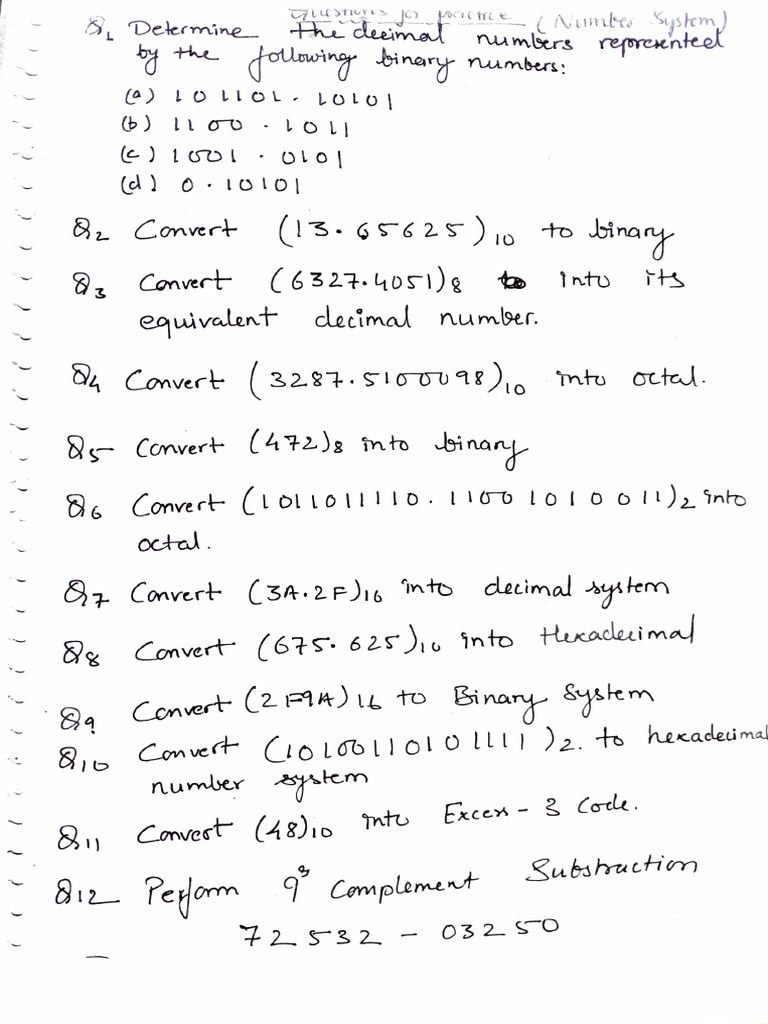 Questions for practice (Number System)
Q1 Determine the decimal numbers represented
by the following binary numbers:
(a) 101101.10101
(b) 1100.1011
(c) 1001.0101
(d) 0.10101
Q2 Convert (13.65625)10 to binary
Q3 Convert (6327.4051)8 into its
equivalent decimal number.
Q4 Convert (3287.5100098)10 into octal.
Q5 Convert (472)8 into binary
Q6 Convert (1011011110.11001010011)2 into
octal.
Q7 Convert (3A.2F)16 into decimal system
Q8 Convert (675.625)10 into Hexadecimal
Q9 Convert (2F9A)16 to Binary System
Q10 Convert (10100110101111)2. to hexadecimal
number system
Q11 Convert (48)10 into Excess-3 Code.
Q12 Perform 9s Complement Substruction
72532 - 03250